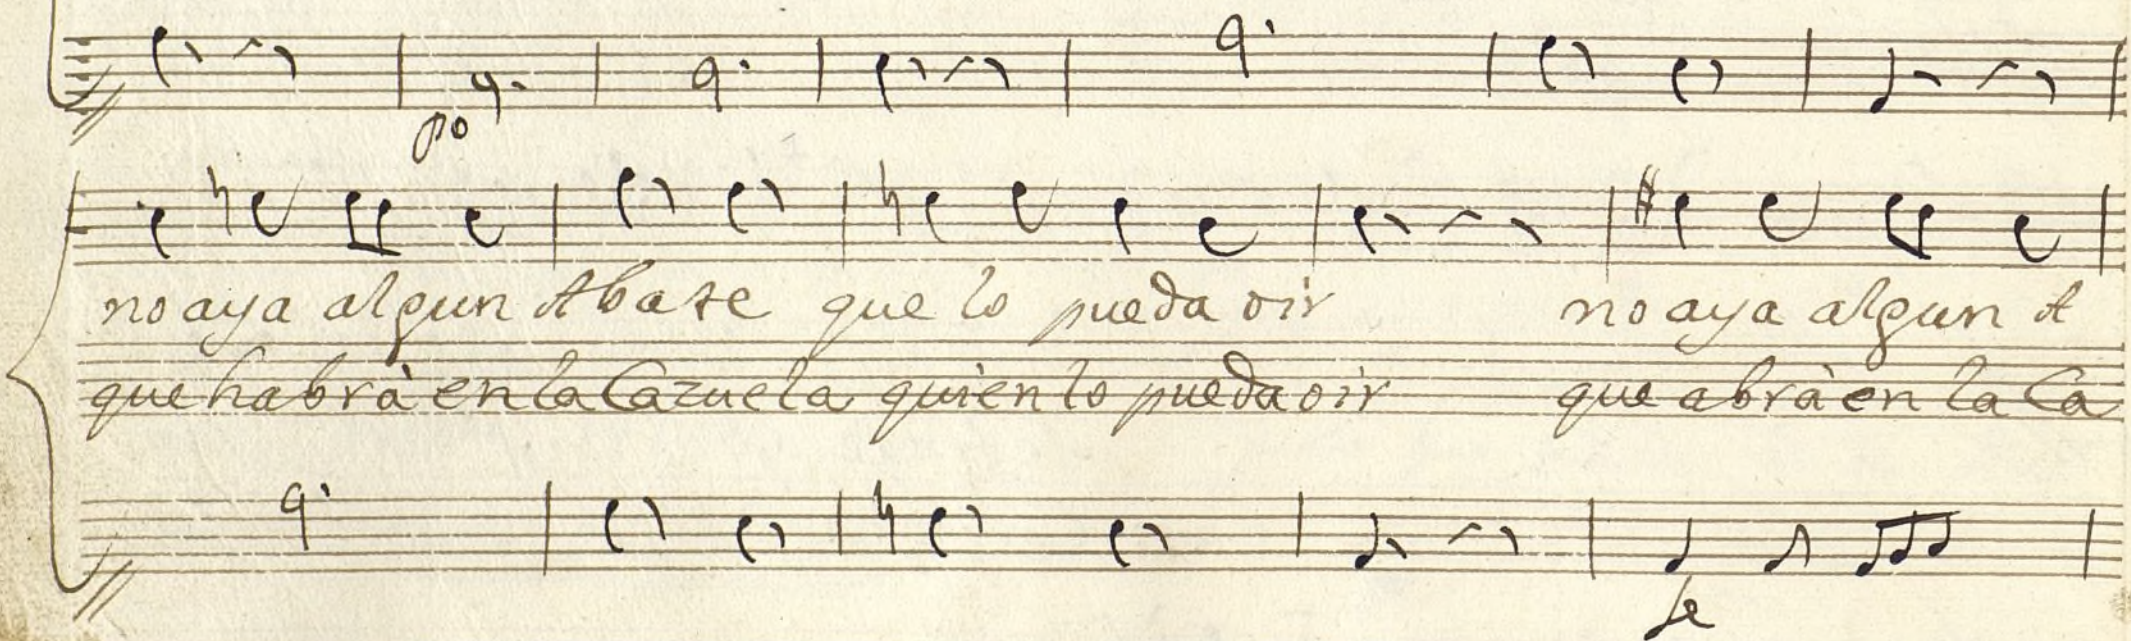 po
no aya algun Abate que lo pueda oir no aya algun A
que habrà en la Cazuela quien lo pueda oir que abrà en la Ca
fe